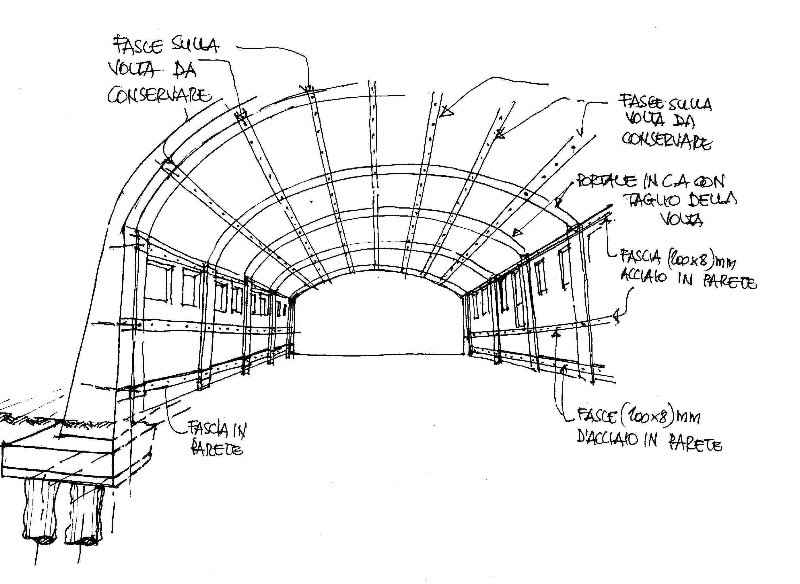 FASCE SULLA
VOLTA DA
CONSERVARE
FASCE SULLA
VOLTA DA
CONSERVARE
PORTALE IN C.A CON
TAGLIO DELLA
VOLTA
FASCIA (200x8)mm
ACCIAIO IN PARETE
FASCE (200x8)mm
D'ACCIAIO IN PARETE
FASCIA IN
PARETE